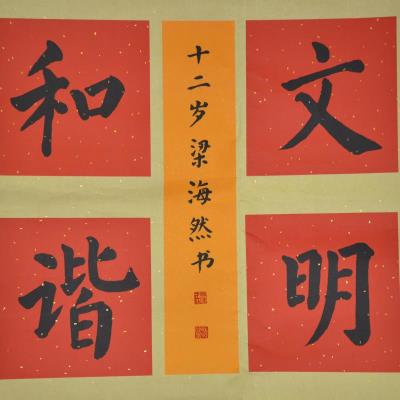 文明
和谐
十二岁梁海然书